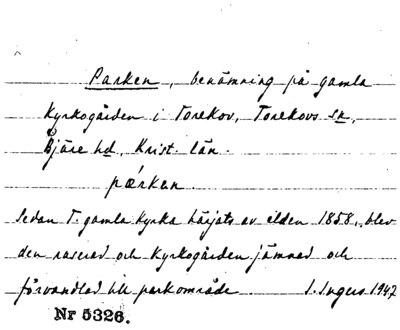 Parken, benämning på gamla
Kyrkogården i Torekov, Torekovs sn,
Bjäre hd, Krist. län.
pærken
Sedan T. gamla kyrka härjats av elden 1858, blev
den raserad och kyrkogården jämnad och
förvandlad till parkområde I. Ingers 1947
Nr 5326.